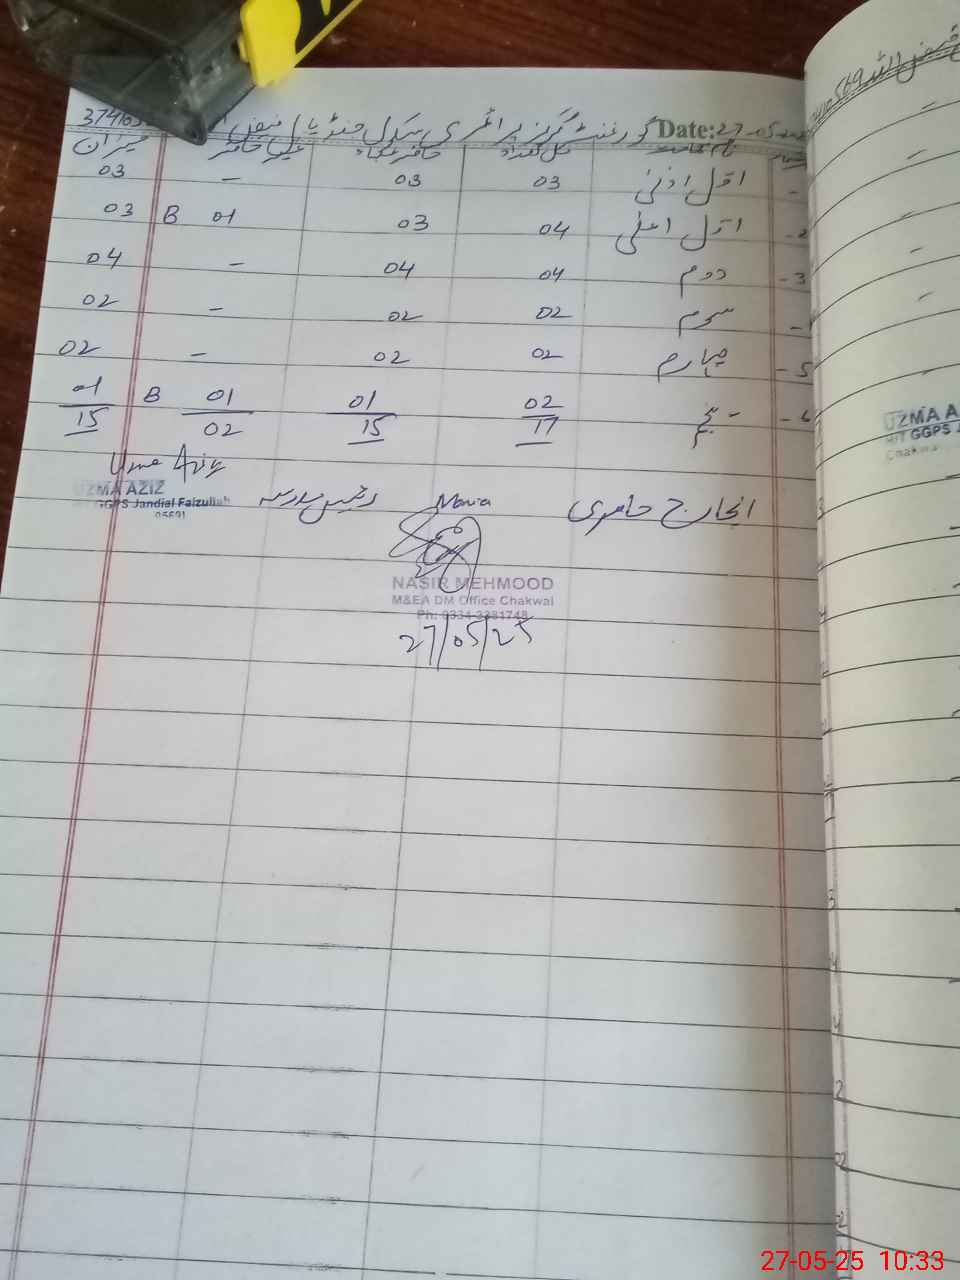 گورنمنٹ گرلز پرائمری سکول جنڈیال فیض Date:27-05
کل تعداد حاضر تعداد غیر حاضر میزان
اول ادنیٰ 03 03 - 03
2- اول اعلیٰ 04 03 01 B 03
3- دوم 04 04 - 04
سوم 02 02 - 02
5- چہارم 02 02 - 02
6- پنجم 02 01 01 B 01
17 15 02 15
Uzma Aziz
انچارج حاضری Maria رئیس مدرسہ UZMA AZIZ
GGPS Jandial Faizullah
NASIR MEHMOOD
M&EA DM Office Chakwal
Ph: 0334
27/05/25
UZMA A
H/T GGPS J
Chakwa
27-05-25 10:33